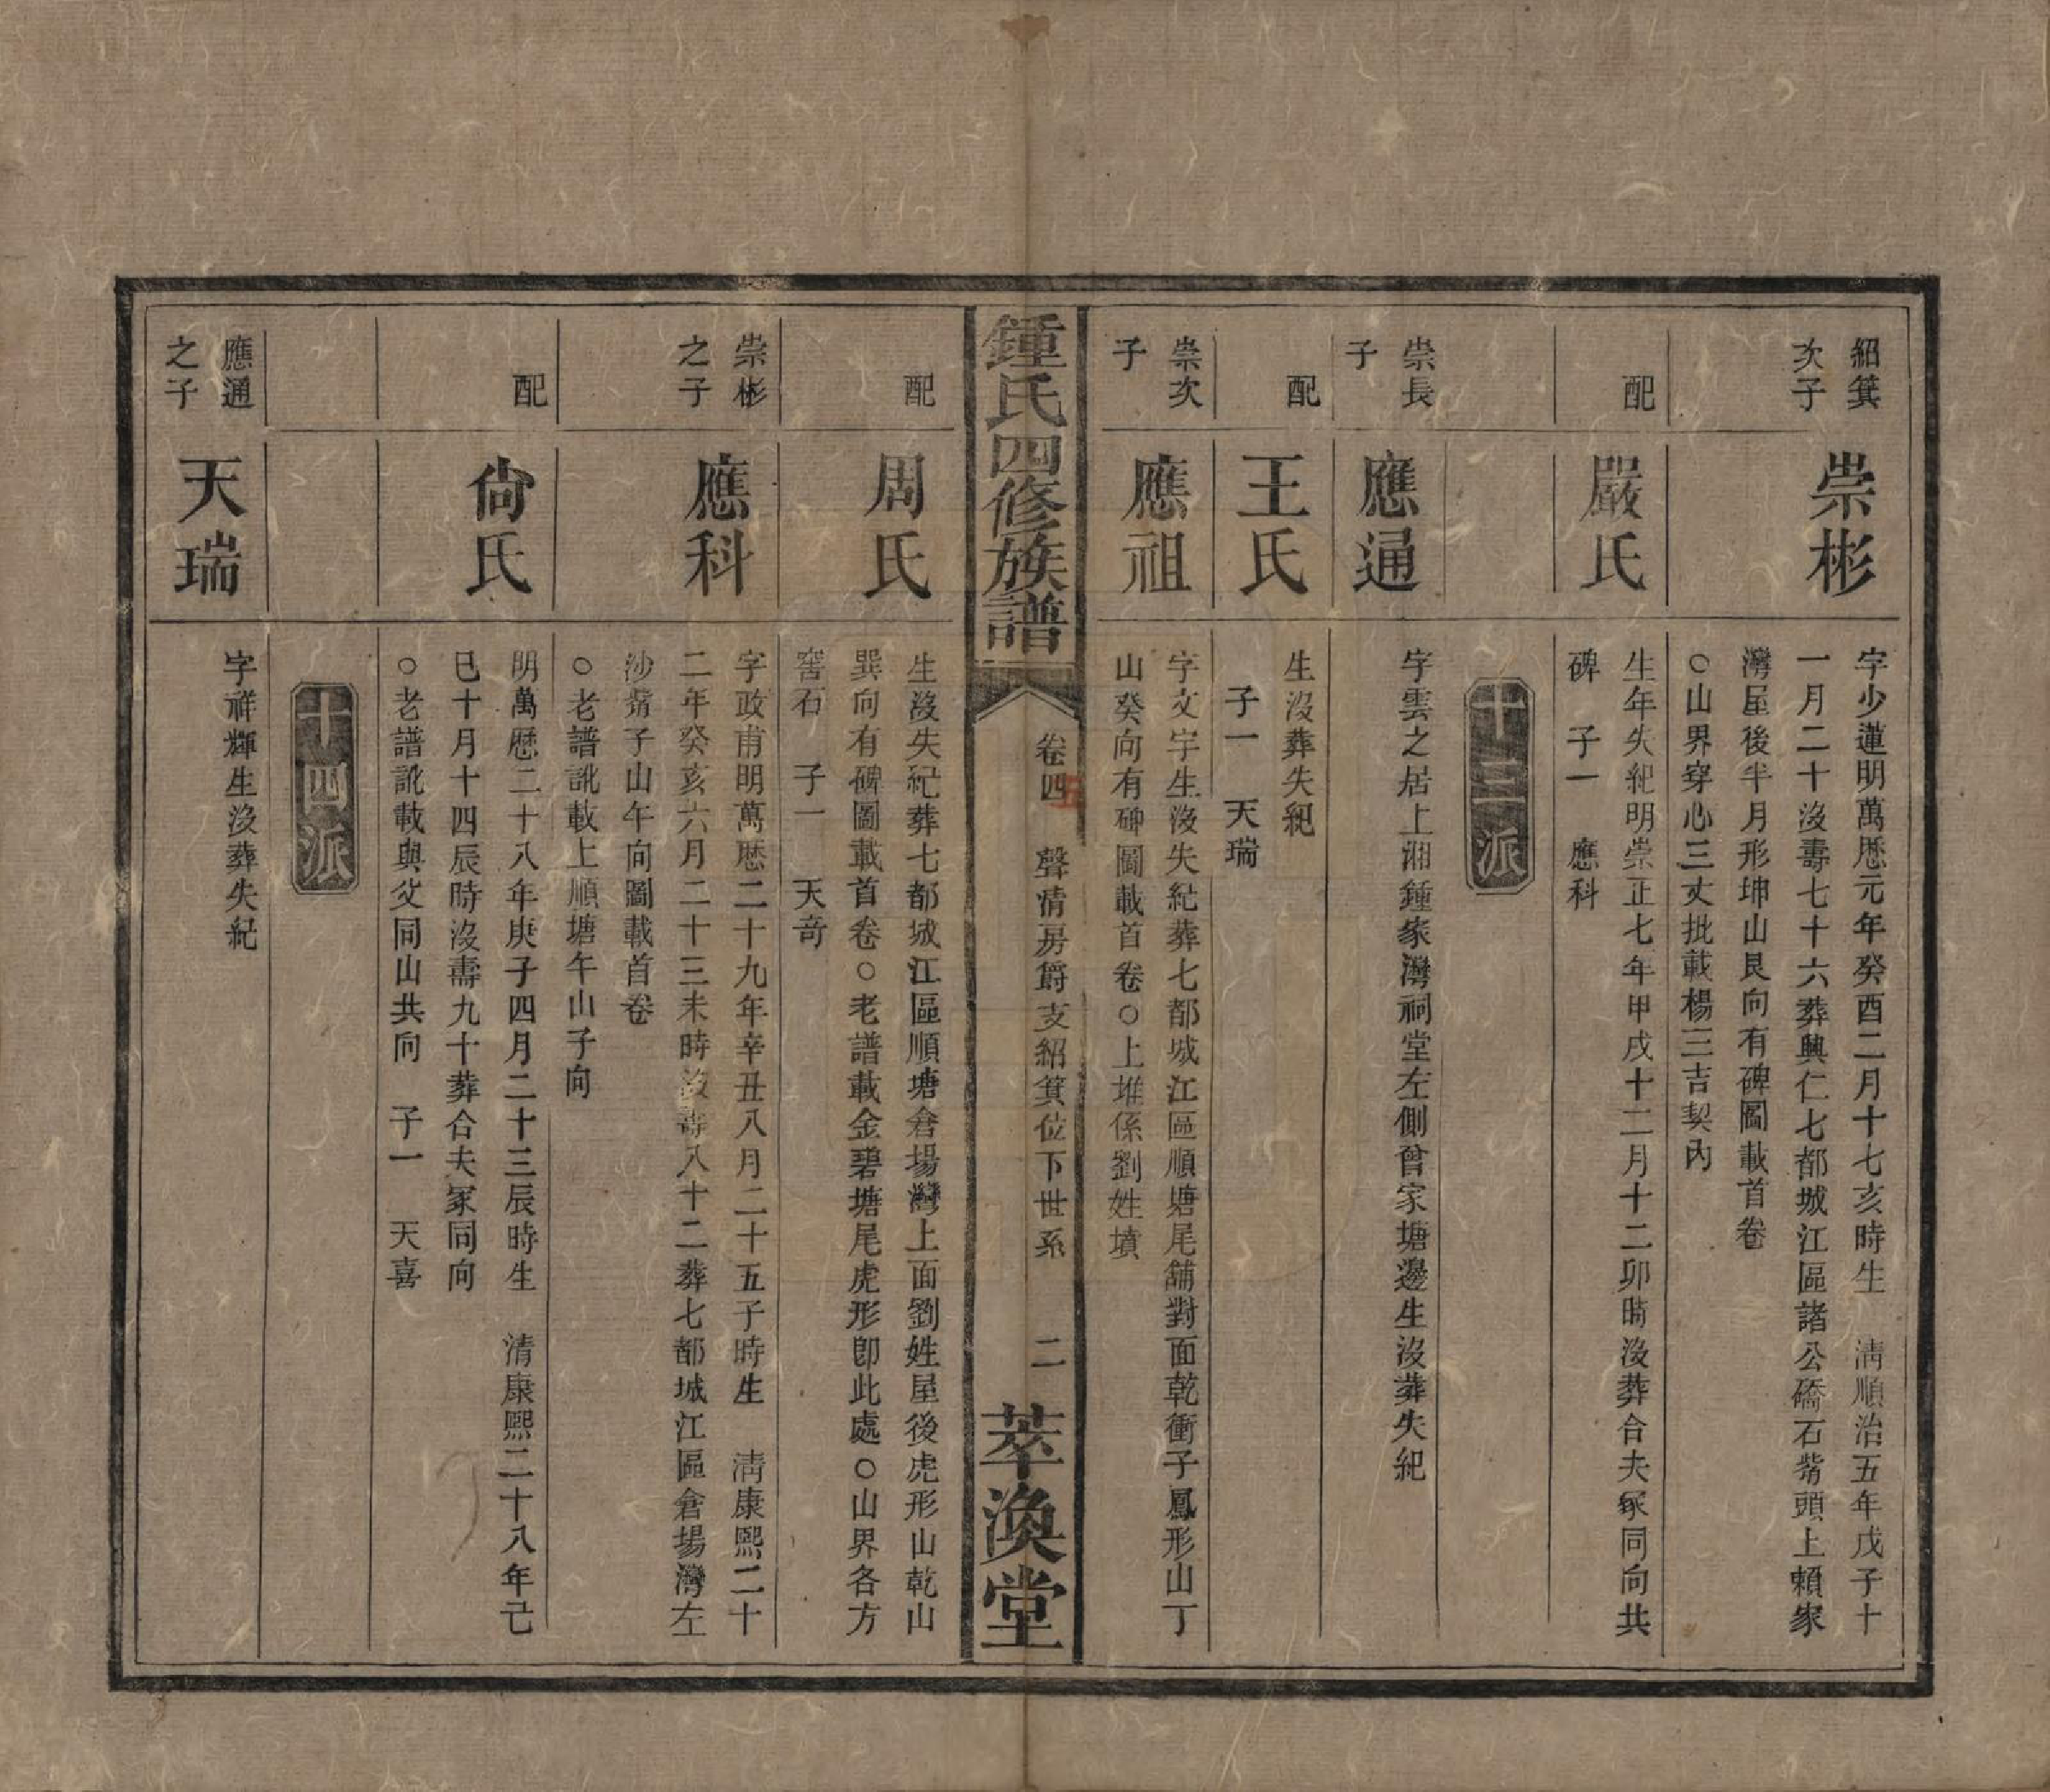 紹箕
次子
崇彬
字少蓮明萬厯元年癸酉二月十七亥時生　清順治五年戊子十
一月二十沒壽七十六葬興仁七都城江區諸公礄石觜頭上賴家
灣屋後半月形坤山艮向有碑圖載首卷
○山界穿心三丈批載楊三吉契內
配
嚴氏
生年失紀明崇正七年甲戌十二月十二卯時沒葬合夫冢同向共
碑　子一　應科
十三派
崇長
子
應通
字雲之居上湘鍾家灣祠堂左側曾家塘邊生沒葬失紀
配
王氏
生沒葬失紀
子一　天瑞
崇次
子
應祖
字文宇生沒失紀葬七都城江區順塘尾舖對面乾衝子鳳形山丁
山癸向有碑圖載首卷○上堆係劉姓墳
鍾氏四修族譜
卷四
五
聲清房爵支紹箕位下世系
二
萃渙堂
配
周氏
生沒失紀葬七都城江區順塘倉場灣上面劉姓屋後虎形山乾山
巽向有碑圖載首卷○老譜載金碧塘尾虎形卽此處○山界各方
窖石　子一　天奇
崇彬
之子
應科
字政甫明萬厯二十九年辛丑八月二十五子時生　清康熙二十
二年癸亥六月二十三未時沒壽八十二葬七都城江區倉場灣左
沙觜子山午向圖載首卷
○老譜訛載上順塘午山子向
配
尙氏
明萬厯二十八年庚子四月二十三辰時生　清康熙二十八年己
巳十月十四辰時沒壽九十葬合夫冢同向
○老譜訛載與父同山共向　子一　天喜
十四派
應通
之子
天瑞
字祥輝生沒葬失紀